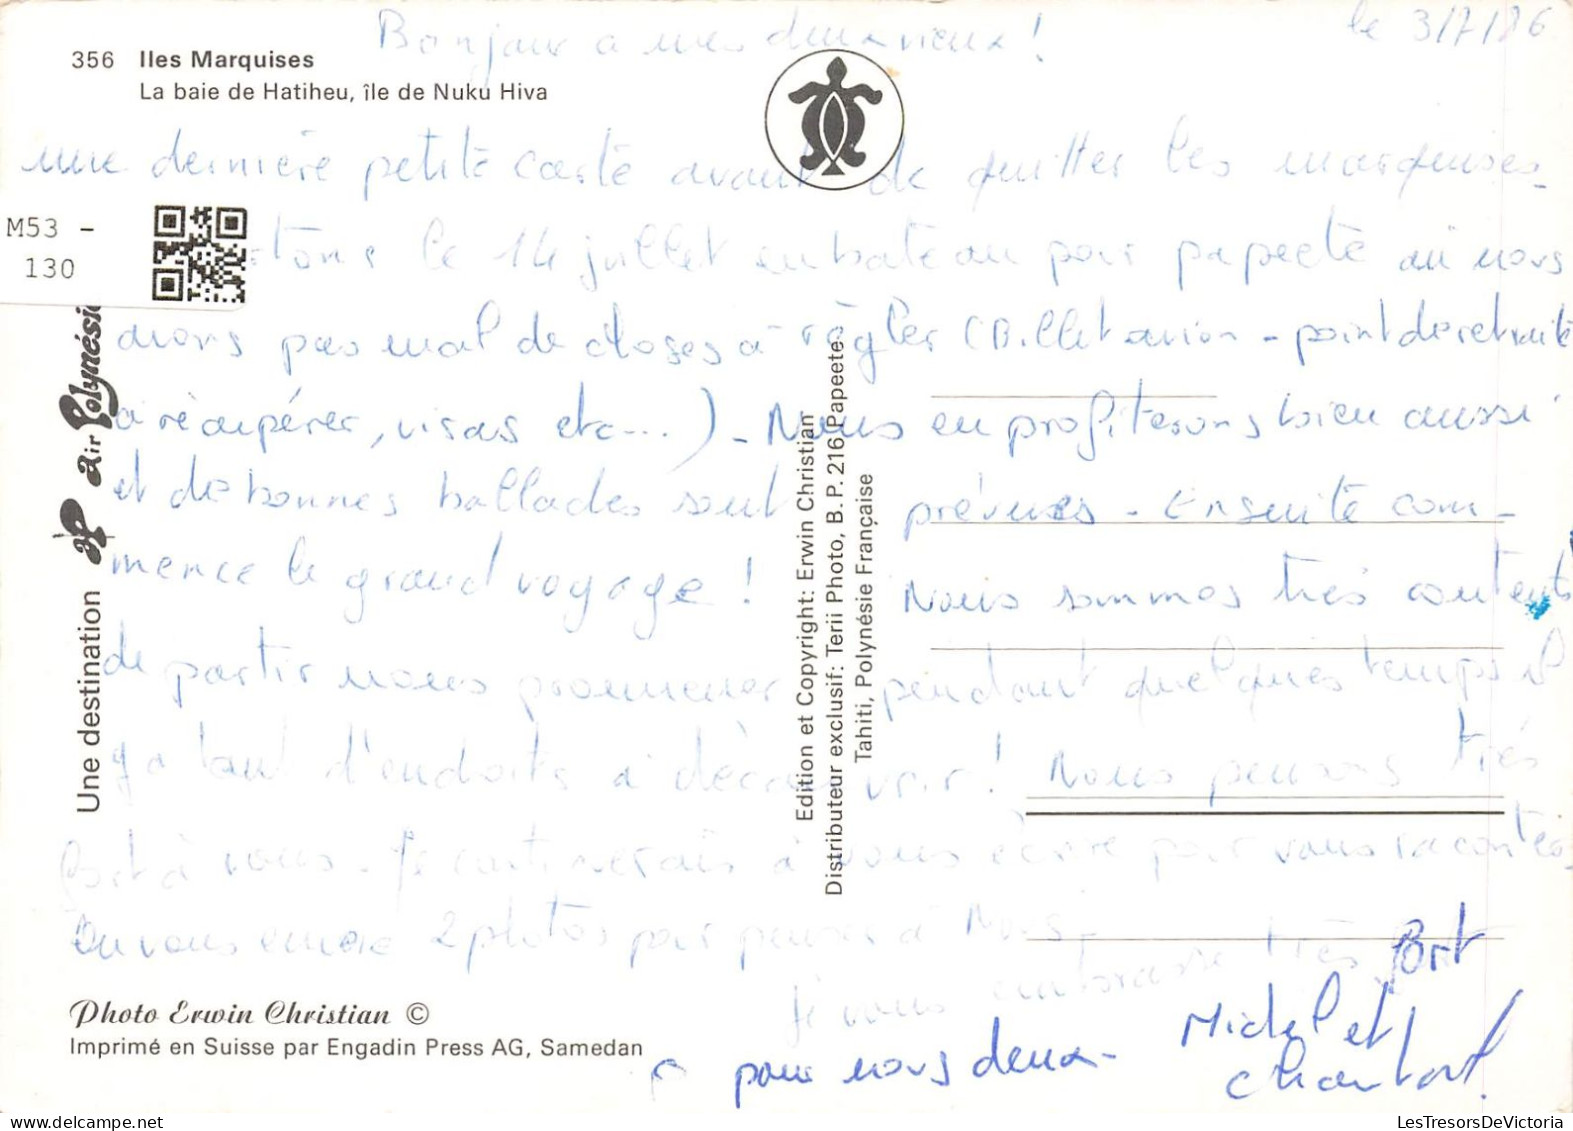 Bonjour a mes deux vieux !
le 3/7/86
356 Iles Marquises
La baie de Hatiheu, île de Nuku Hiva
une dernière petite carte avant de quitter les marquises_
M53 -
130
le 14 juillet en bateau pour papeete où nous
avons pas mal de choses à régler (Billet avion - point de retraite
à récupérer, visas etc....)_ Nous en profiterons bien aussi
et de bonnes ballades sont prévues - Ensuite com-
mence le grand voyage ! Nous sommes très contents
de partir nous promener pendant quelques temps il
y a tant d'endroits à découvrir ! Nous pensons très
fort à vous - Je continuerais à vous écrire pour vous raconter.
encore 2 photos pour penser à Nous_
Je vous embrasse très fort
pour nous deux -
Michel et
Chantal !
Une destination air Polynésie
Edition et Copyright: Erwin Christian
Distributeur exclusif: Terii Photo, B. P. 216 Papeete
Tahiti, Polynésie Française
Photo Erwin Christian ©
Imprimé en Suisse par Engadin Press AG, Samedan
LesTresorsDeVictoria